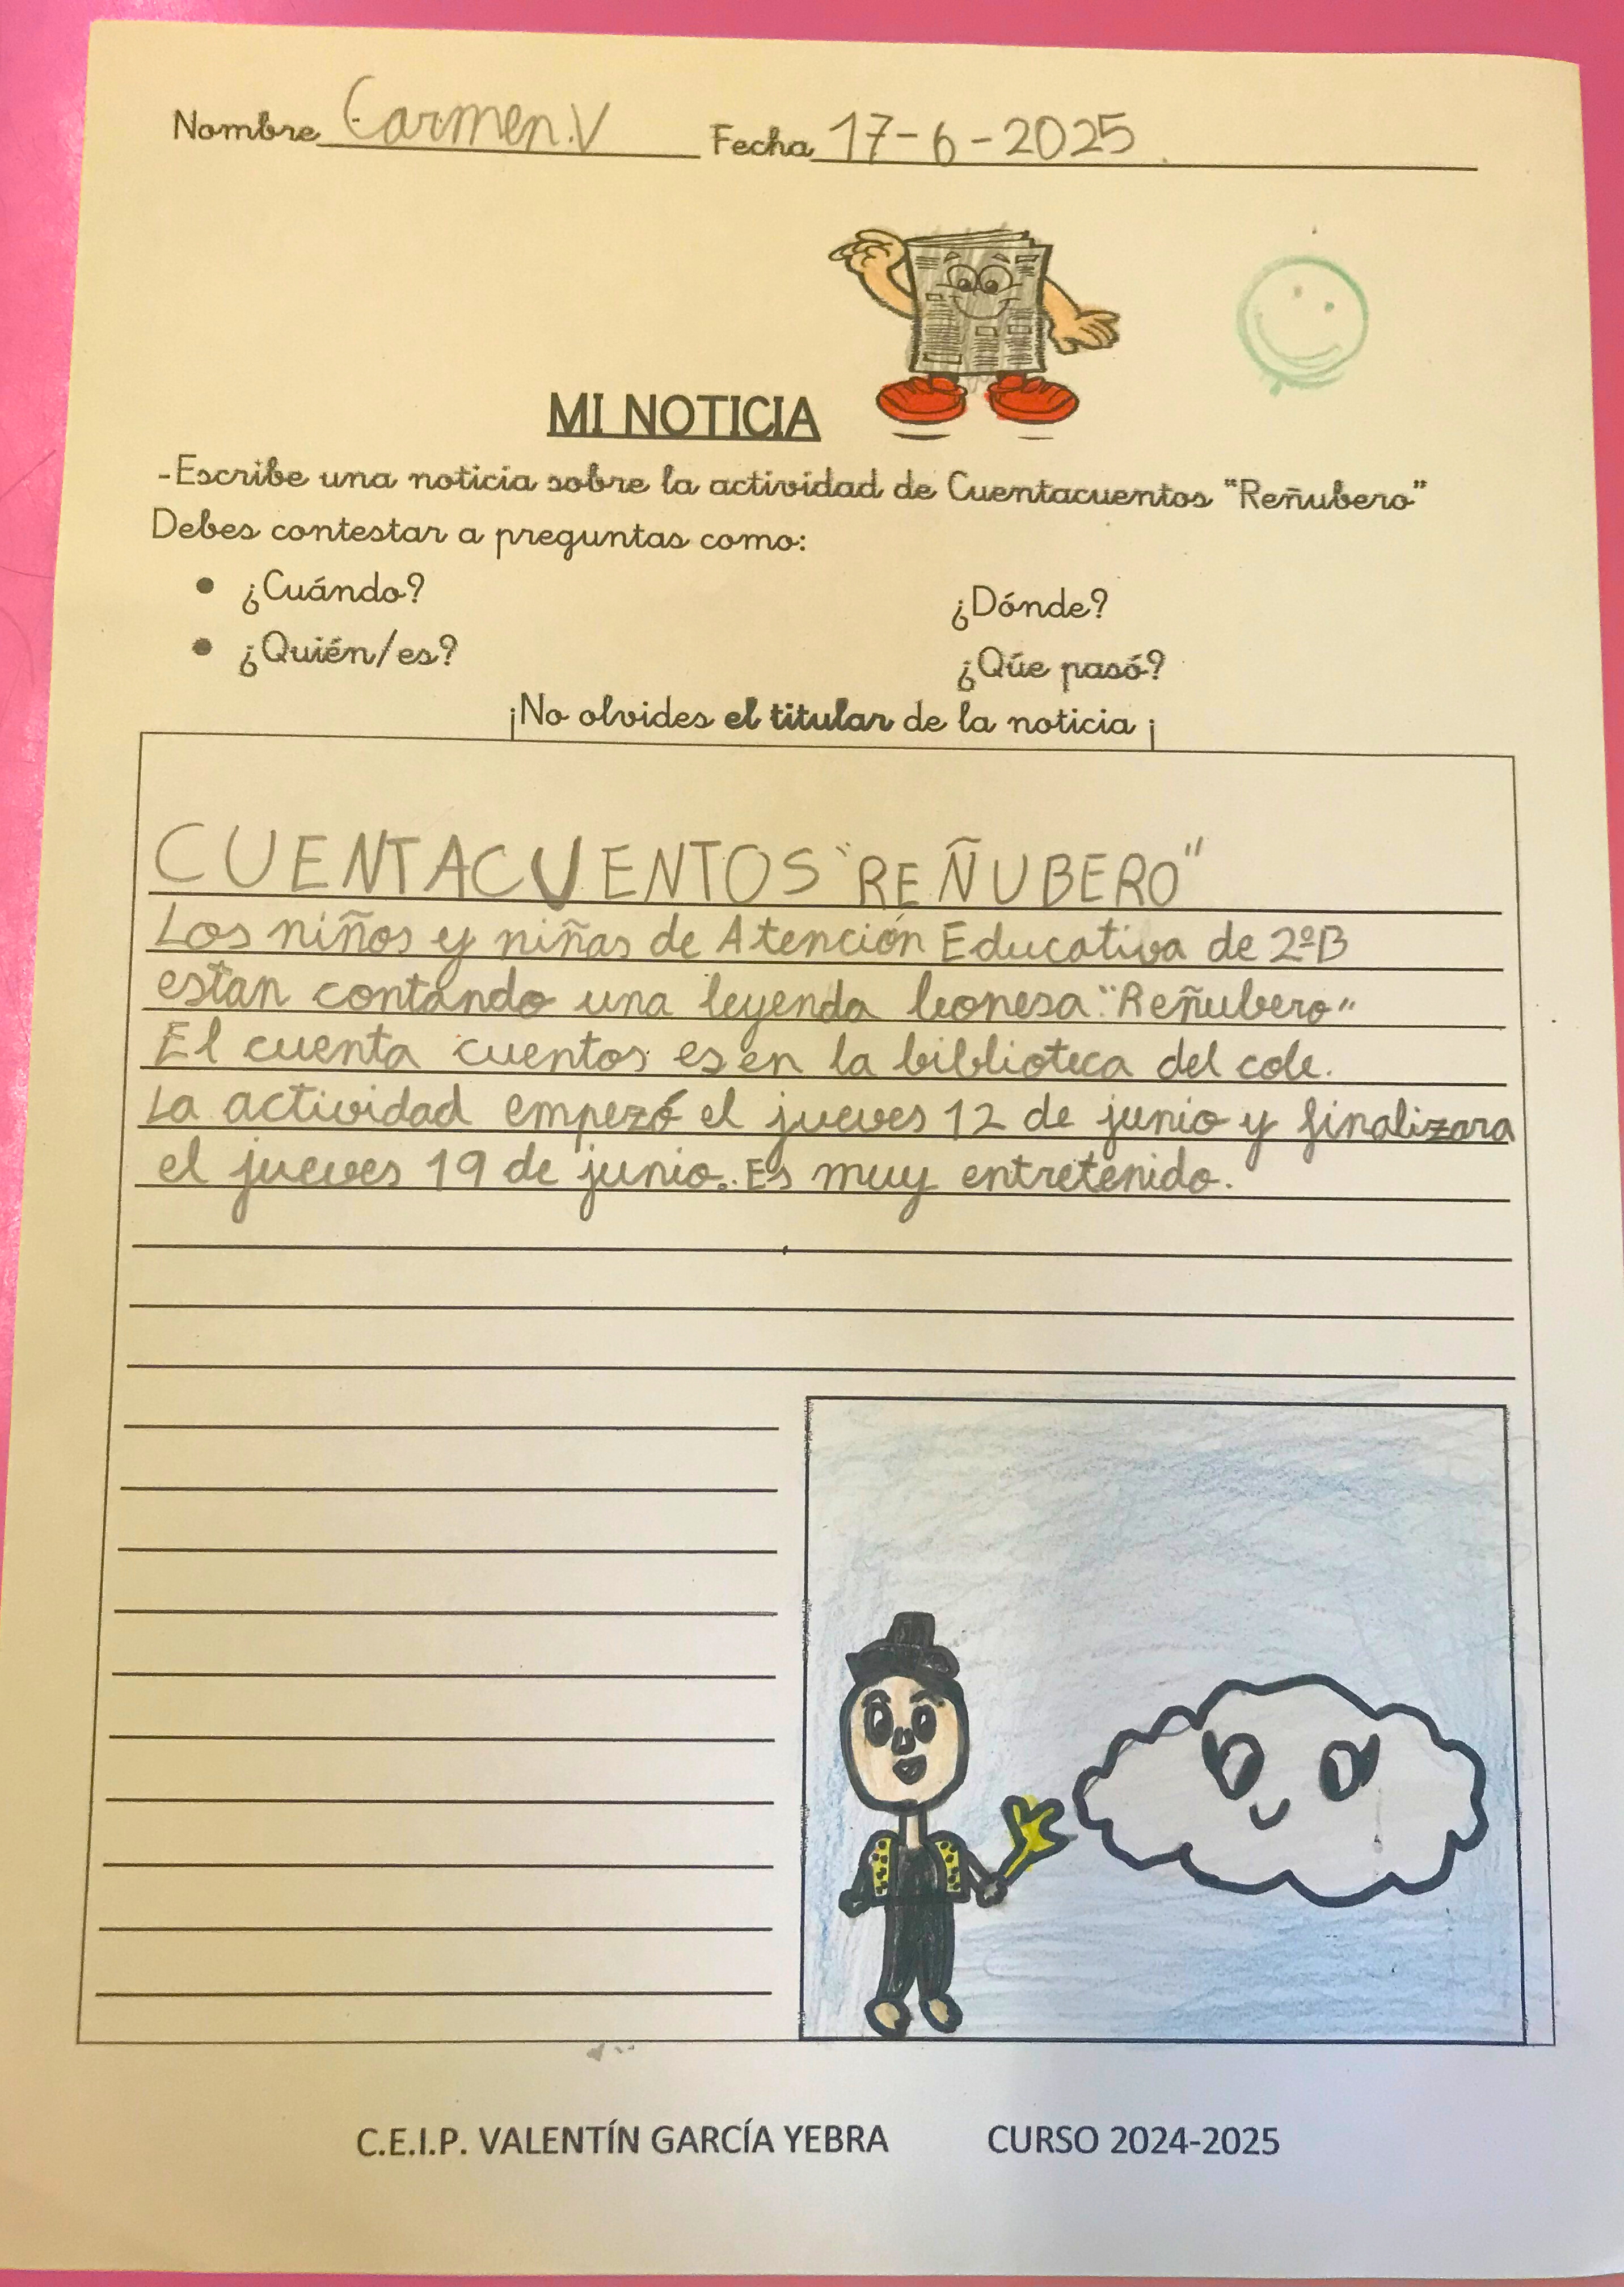 Nombre Carmen.V Fecha 17-6-2025
MI NOTICIA
-Escribe una noticia sobre la actividad de Cuentacuentos "Reñubero"
Debes contestar a preguntas como:
• ¿Cuándo? ¿Dónde?
• ¿Quién/es? ¿Qúe pasó?
¡No olvides el titular de la noticia ¡
CUENTACUENTOS "REÑUBERO"
Los niños y niñas de Atención Educativa de 2ºB
estan contando una leyenda leonesa "Reñubero"
El cuenta cuentos es en la biblioteca del cole.
La actividad empezó el jueves 12 de junio y finalizara
el jueves 19 de junio. Es muy entretenido.
C.E.I.P. VALENTÍN GARCÍA YEBRA CURSO 2024-2025